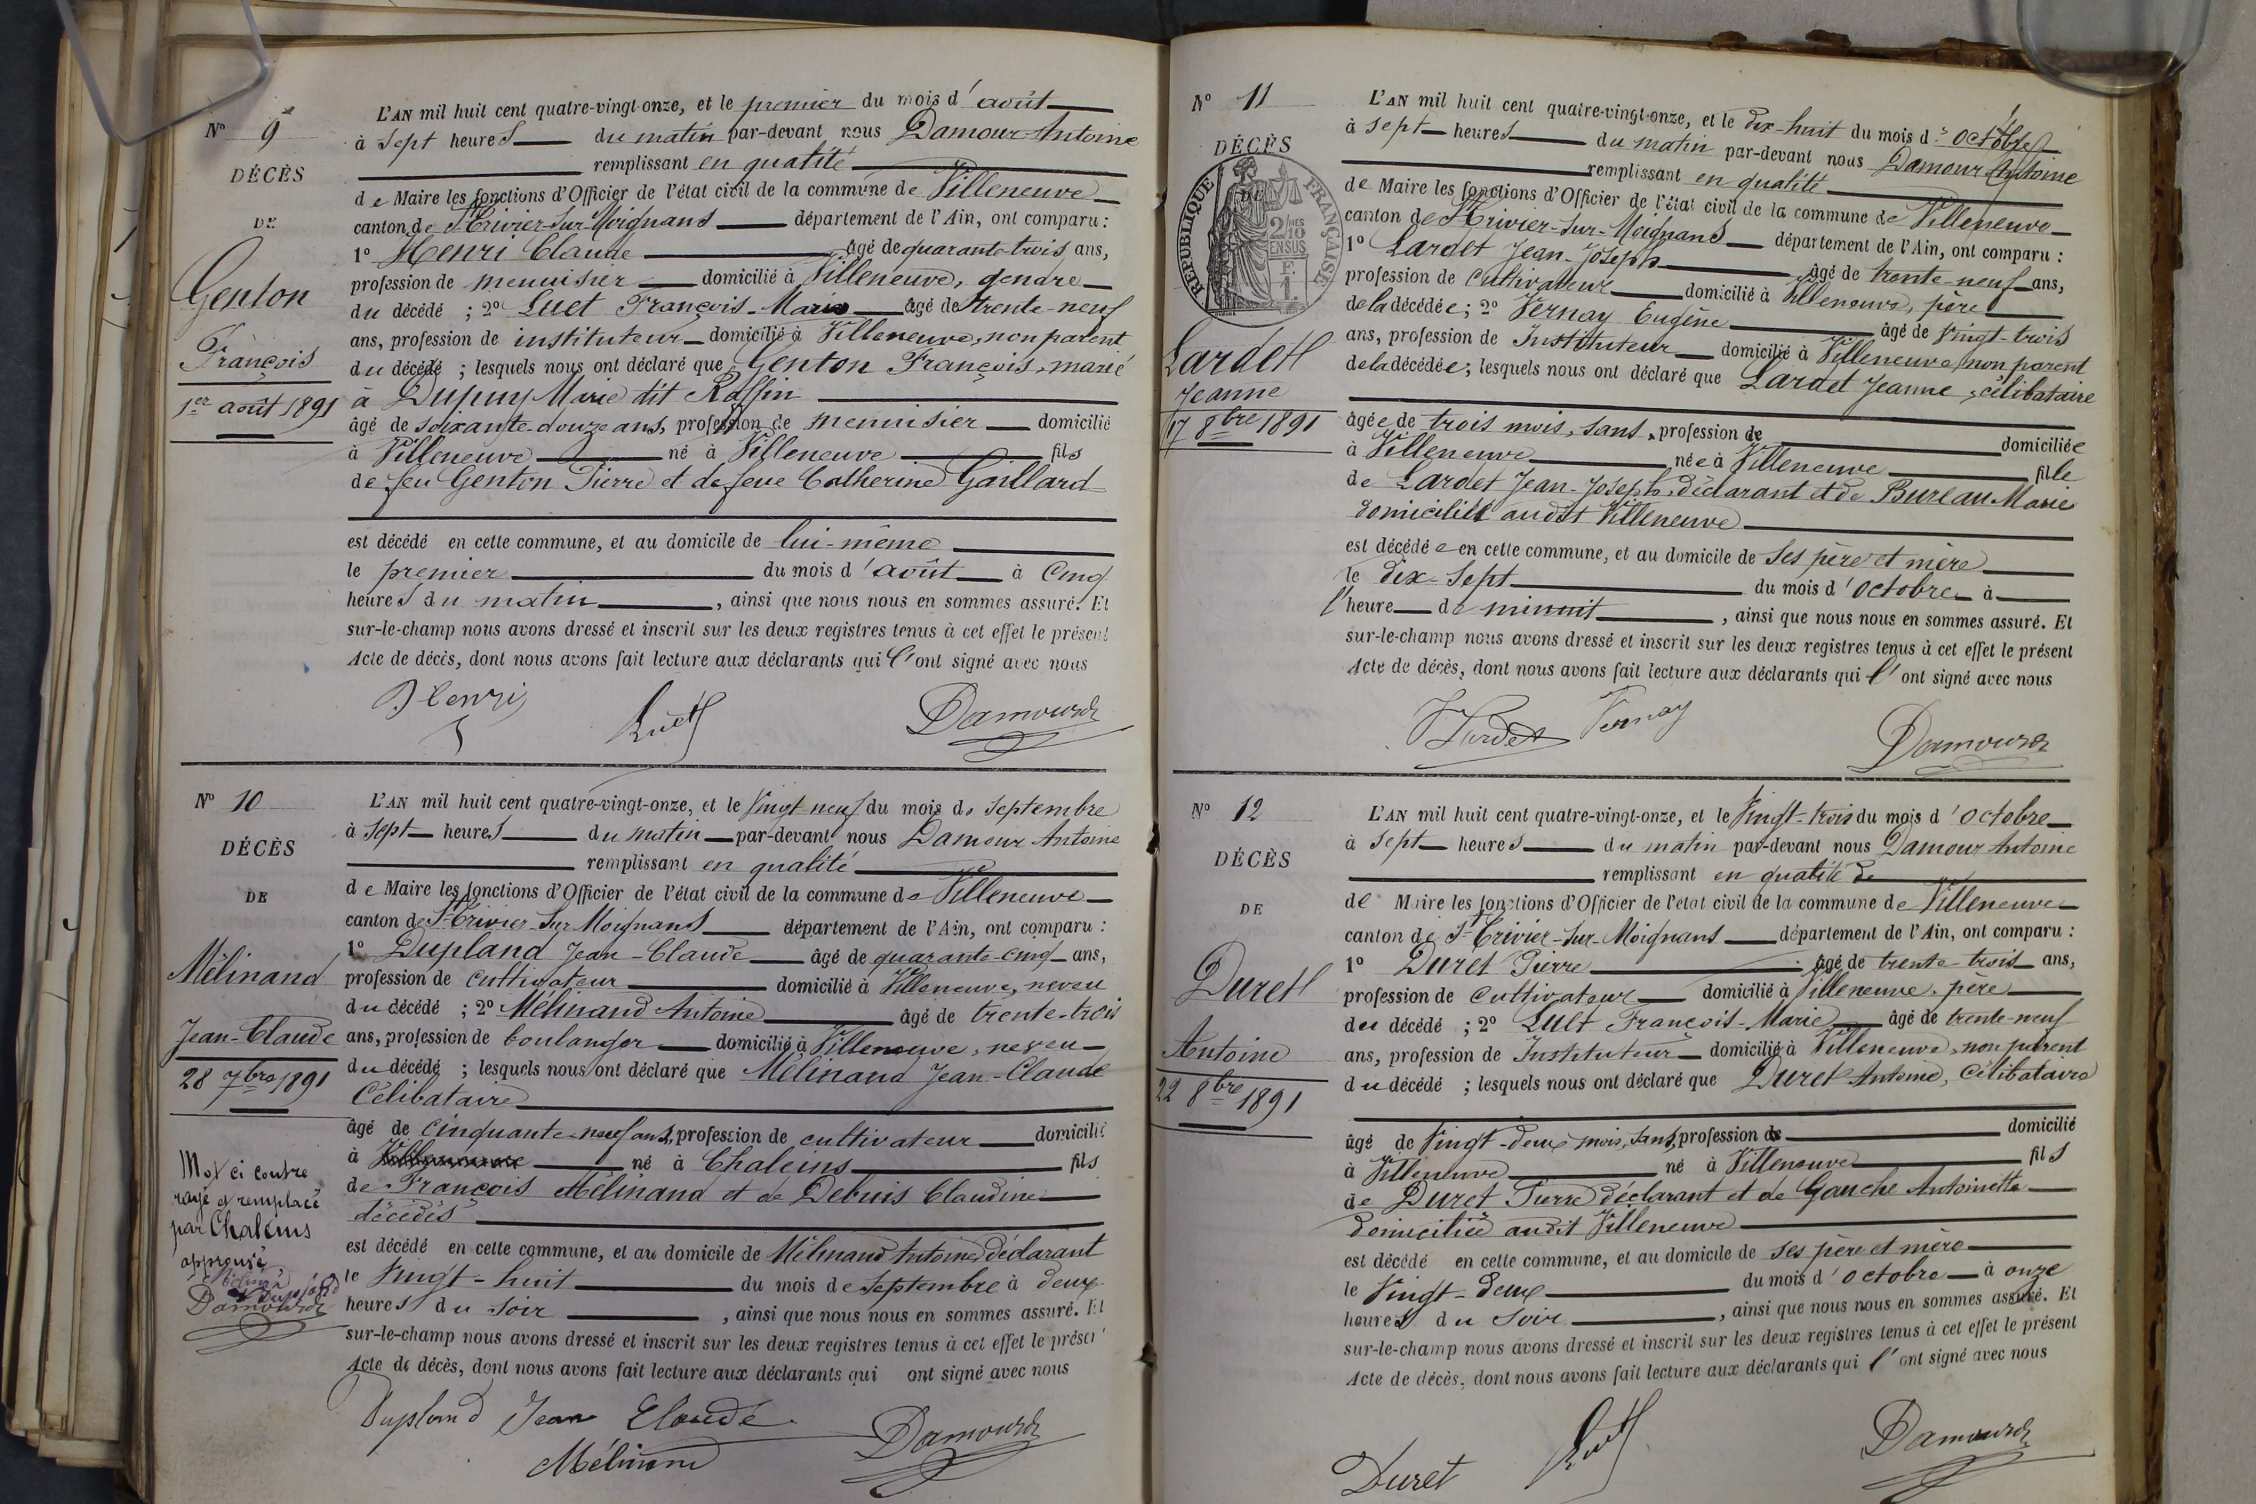 N° 9
DÉCÈS
DE
Genton
François
1er août 1891
L'AN mil huit cent quatre-vingt-onze, et le premier du mois d'août
à sept heures du matin par-devant nous Damour Antoine
remplissant en qualité
de Maire les fonctions d'Officier de l'état civil de la commune de Villeneuve
canton de St Trivier-sur-Moignans département de l'Ain, ont comparu :
1° Henri Claude âgé de quarante-trois ans,
profession de menuisier domicilié à Villeneuve, gendre
du décédé ; 2° Luet François-Marie âgé de trente-neuf
ans, profession de instituteur domicilié à Villeneuve, non parent
du décédé ; lesquels nous ont déclaré que Genton François, marié
à Dupuy Marie dit Raffin
âgé de soixante-douze ans, profession de menuisier domicilié
à Villeneuve né à Villeneuve fils
de feu Genton Pierre et de feue Catherine Gaillard
est décédé en cette commune, et au domicile de lui-même
le premier du mois d'août à cinq
heures du matin, ainsi que nous nous en sommes assuré. Et
sur-le-champ nous avons dressé et inscrit sur les deux registres tenus à cet effet le présent
Acte de décès, dont nous avons fait lecture aux déclarants qui l'ont signé avec nous
Henri Luet Damour
N° 10
DÉCÈS
DE
Mélinand
Jean-Claude
28 7bre 1891
Mot ci contre
rayé et remplacé
par Chaleins
approuvé
Mélinand
Dupland
Damour
L'AN mil huit cent quatre-vingt-onze, et le vingt-neuf du mois de septembre
à sept heures du matin par-devant nous Damour Antoine
remplissant en qualité
de Maire les fonctions d'Officier de l'état civil de la commune de Villeneuve
canton de St Trivier-sur-Moignans département de l'Ain, ont comparu :
1° Dupland Jean-Claude âgé de quarante-cinq ans,
profession de cultivateur domicilié à Villeneuve, neveu
du décédé ; 2° Mélinand Antoine âgé de trente-trois
ans, profession de boulanger domicilié à Villeneuve, neveu
du décédé ; lesquels nous ont déclaré que Mélinand Jean-Claude
Célibataire
âgé de cinquante-neuf ans, profession de cultivateur domicilié
à Villeneuve né à Chaleins fils
de François Mélinand et de Debuis Claudine
décédés
est décédé en cette commune, et au domicile de Mélinand Antoine, déclarant
le vingt-huit du mois de septembre à deux
heures du soir, ainsi que nous nous en sommes assuré. Et
sur-le-champ nous avons dressé et inscrit sur les deux registres tenus à cet effet le présent
Acte de décès, dont nous avons fait lecture aux déclarants qui ont signé avec nous
Dupland Jean Claude Damour
Mélinand
N° 11
DÉCÈS
DE
RÉPUBLIQUE FRANÇAISE
2/10
EN SUS
Lardet
Jeanne
17 8bre 1891
L'AN mil huit cent quatre-vingt-onze, et le dix-huit du mois d'octobre
à sept heures du matin par-devant nous Damour Antoine
remplissant en qualité
de Maire les fonctions d'Officier de l'état civil de la commune de Villeneuve
canton de St Trivier-sur-Moignans département de l'Ain, ont comparu :
1° Lardet Jean-Joseph âgé de trente-neuf ans,
profession de cultivateur domicilié à Villeneuve, père
de la décédée ; 2° Vernay Eugène âgé de vingt-trois
ans, profession de Instituteur domicilié à Villeneuve, non parent
de la décédée ; lesquels nous ont déclaré que Lardet Jeanne, célibataire
âgée de trois mois, sans profession de domiciliée
à Villeneuve née à Villeneuve fille
de Lardet Jean-Joseph, déclarant et de Bureau Marie
domiciliés audit Villeneuve
est décédée en cette commune, et au domicile de ses père et mère
le dix-sept du mois d'octobre à
l'heure de minuit, ainsi que nous nous en sommes assuré. Et
sur-le-champ nous avons dressé et inscrit sur les deux registres tenus à cet effet le présent
Acte de décès, dont nous avons fait lecture aux déclarants qui l'ont signé avec nous
Lardet Vernay Damour
N° 12
DÉCÈS
DE
Duret
Antoine
22 8bre 1891
L'AN mil huit cent quatre-vingt-onze, et le vingt-trois du mois d'octobre
à sept heures du matin par-devant nous Damour Antoine
remplissant en qualité de
de Maire les fonctions d'Officier de l'état civil de la commune de Villeneuve
canton de St Trivier-sur-Moignans département de l'Ain, ont comparu :
1° Duret Pierre âgé de trente-trois ans,
profession de cultivateur domicilié à Villeneuve, père
du décédé ; 2° Luet François-Marie âgé de trente-neuf
ans, profession de Instituteur domicilié à Villeneuve, non parent
du décédé ; lesquels nous ont déclaré que Duret Antoine, Célibataire
âgé de vingt-deux mois, sans profession de domicilié
à Villeneuve né à Villeneuve fils
de Duret Pierre déclarant et de Gauche Antoinette
domiciliés audit Villeneuve
est décédé en cette commune, et au domicile de ses père et mère
le vingt-deux du mois d'octobre à onze
heures du soir, ainsi que nous nous en sommes assuré. Et
sur-le-champ nous avons dressé et inscrit sur les deux registres tenus à cet effet le présent
Acte de décès, dont nous avons fait lecture aux déclarants qui l'ont signé avec nous
Duret Luet Damour